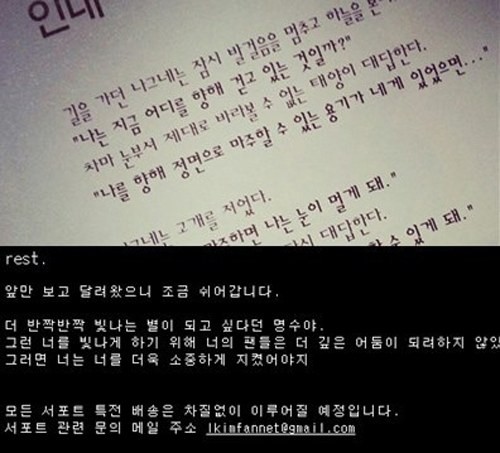 인내
길을 가던 나그네는 잠시 발걸음을 멈추고 하늘을 본
"나는 지금 어디를 향해 걷고 있는 것일까?"
차마 눈부셔 제대로 바라볼 수 없는 태양이 대답한다.
"나를 향해 정면으로 마주할 수 있는 용기가 네게 있었으면..."
그네는 고개를 저었다.
마주하면 나는 눈이 멀게 돼."
다시 대답한다.
수 있게 돼."
rest.
앞만 보고 달려왔으니 조금 쉬어갑니다.
더 반짝반짝 빛나는 별이 되고 싶다던 명수야.
그런 너를 빛나게 하기 위해 너의 팬들은 더 깊은 어둠이 되려하지 않았
그러면 너는 너를 더욱 소중하게 지켰어야지
모든 서포트 특전 배송은 차질없이 이루어질 예정입니다.
서포트 관련 문의 메일 주소 lkimfannet@gmail.com